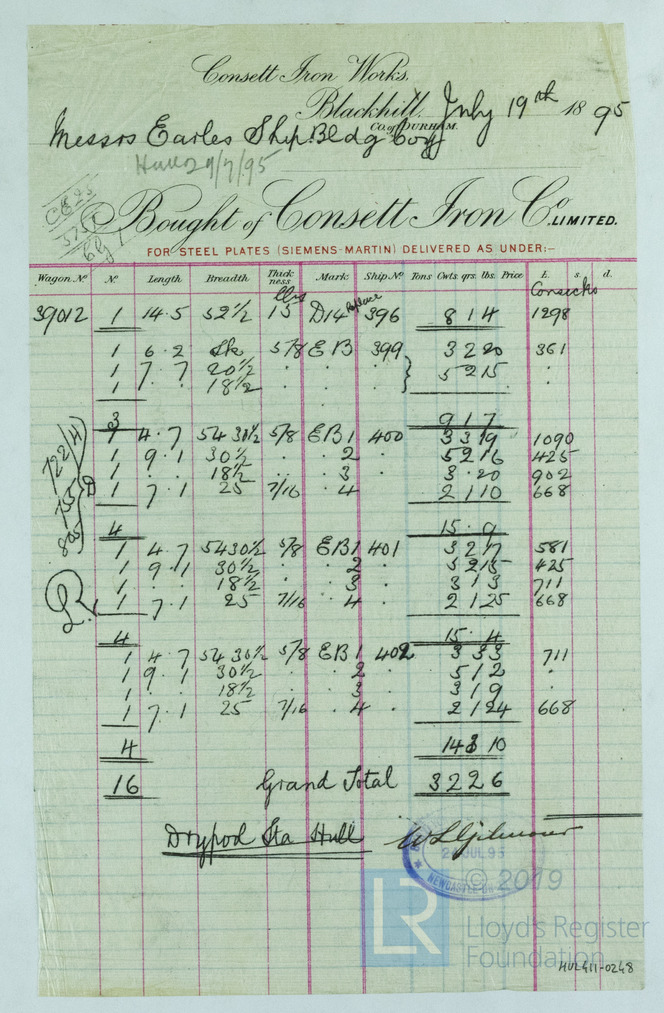 Consett Iron Works,
Blackhill, July 19th 1895
CO. OF DURHAM.
Messrs Earles Ship Bldg Coy
Hull 29/7/95
Bought of Consett Iron Co. LIMITED.
FOR STEEL PLATES (SIEMENS-MARTIN) DELIVERED AS UNDER:-
Wagon No No. Length Breadth Thickness Mark Ship No Tons Cwts. qrs. lbs. Price £. s. d.
lbs
39012 1 14.5 52½ 15 D14 replace 396 8 1 4 1298
1 6.2 Sk 5/8 EB 399 3 2 20 361
1 7.7 20½ . . . } 5 2 15 .
1 . . 18½ . . . .
3 9 1 7
1 4.7 54 30½ 5/8 EB1 400 3 3 19 1090
1 9.1 30½ . . 2 5 2 16 425
1 . . 18½ . . 3 3 . 20 902
D 1 7.1 25 7/16 . 4 2 1 10 668
4 15 . 9
1 4.7 54 30½ 5/8 EB1 401 3 2 17 581
1 9.1 30½ . . 2 5 2 15 425
1 . . 18½ . . 3 3 1 3 711
1 7.1 25 7/16 . 4 2 1 25 668
4 15 . 4
1 4.7 54 30½ 5/8 EB1 402 3 3 3 711
1 9.1 30½ . . 2 5 1 2 .
1 . . 18½ . . 3 3 1 9 .
1 7.1 25 7/16 . 4 2 1 24 668
4 14 3 10
16 Grand Total 3 2 2 6
Drypool Sta Hull W L Gilmour
NEWCASTLE
© 2019
LR Lloyd's Register
Foundation
HUL411-0248